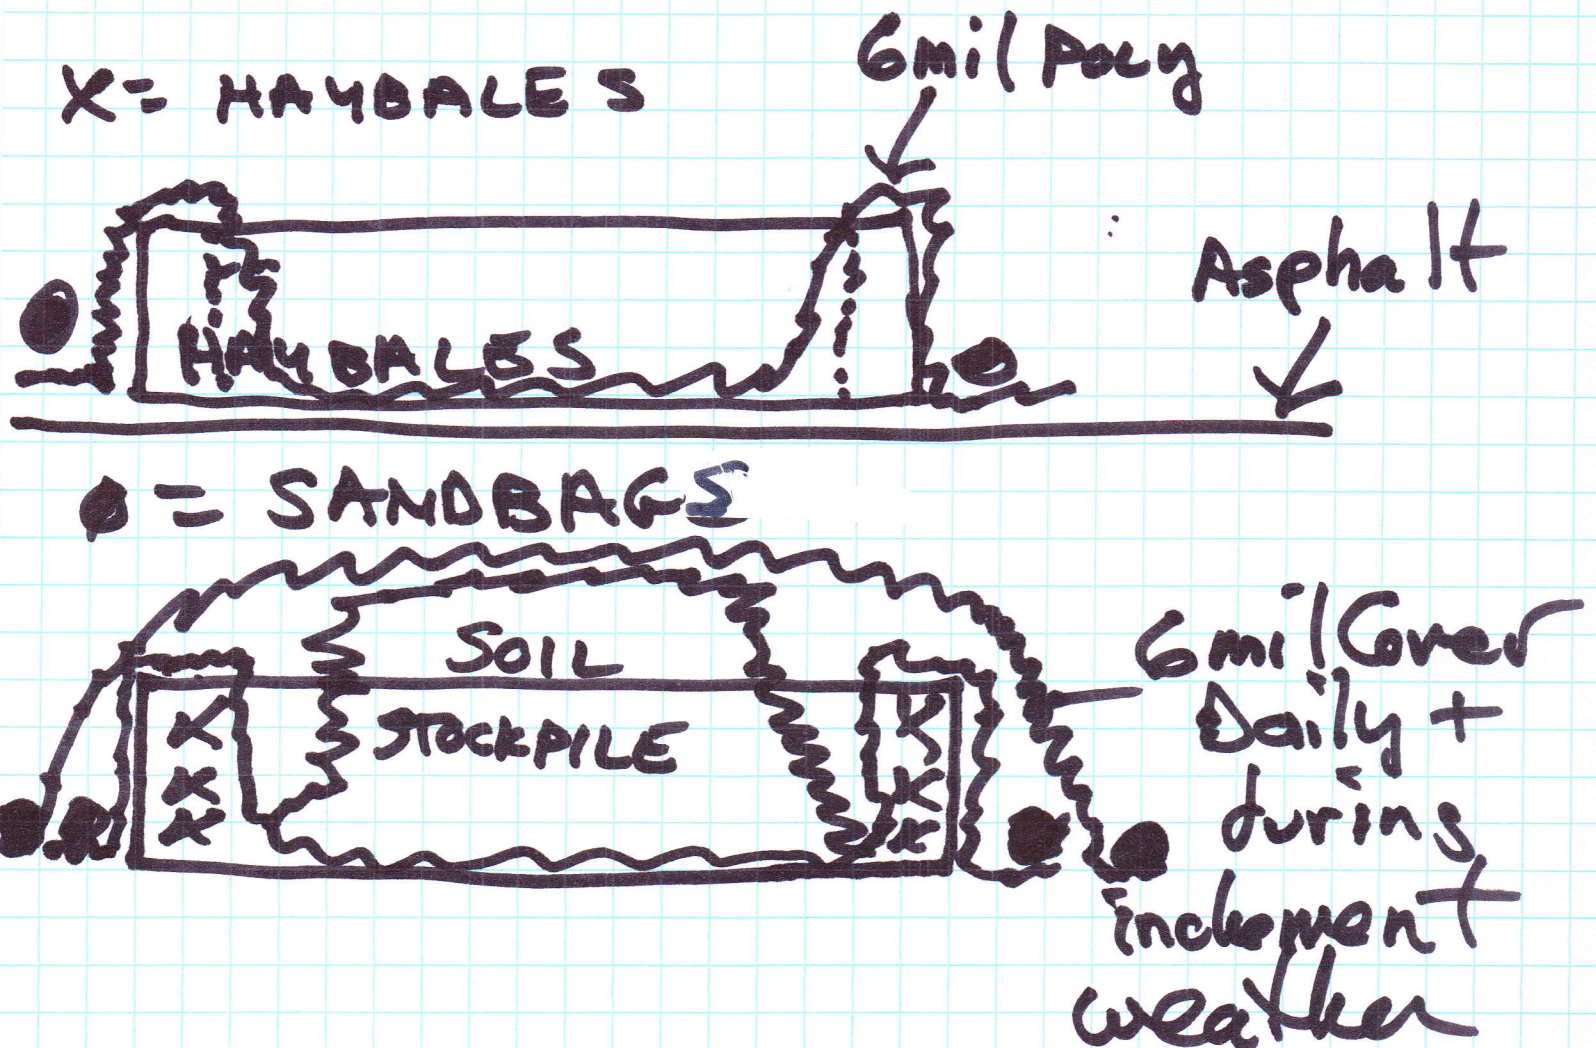 X = HAYBALES
6mil Poly
Asphalt
HAYBALES
= SANDBAGS
SOIL
STOCKPILE
X X
X X
X X
6mil Cover
Daily +
during
inclement
weather